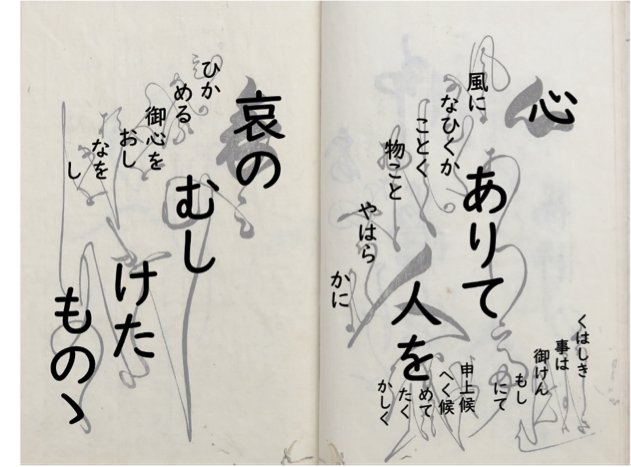 心
ありて
人を
風に
なひくか
ことく
物こと
やはら
かに
くはしき
事は
御けん
もし
にて
申上候
へく候
めて
たく
かしく
哀の
むし
けた
ものゝ
ひか
める
御心を
おし
なを
し